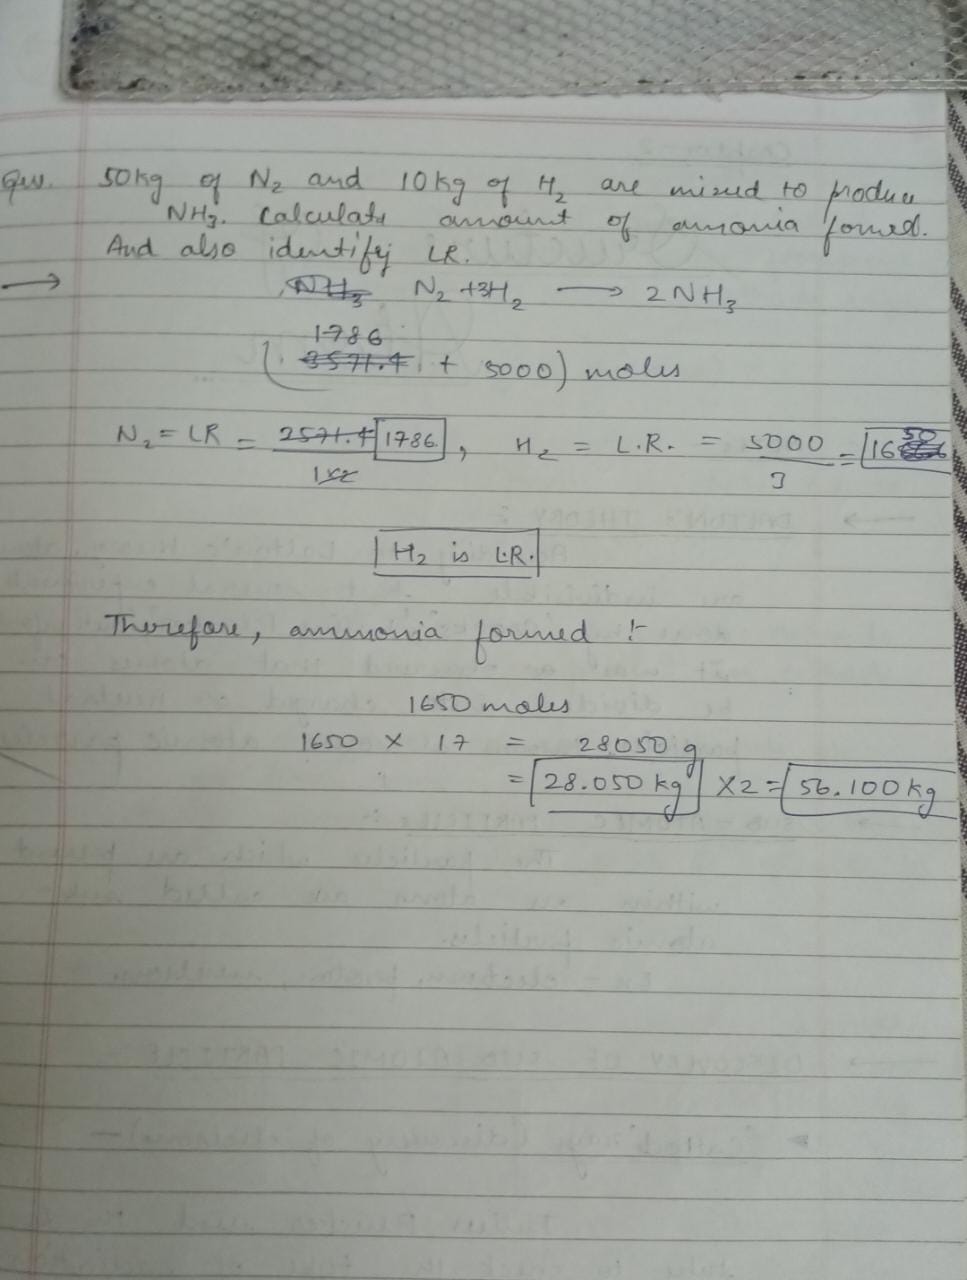 Que. 50kg of N₂ and 10kg of H₂ are mixed to produce
NH₃. Calculate amount of ammonia formed.
And also identify LR.
→ N̶H̶₃̶ N₂ +3H₂ → 2NH₃
1786
(3̶5̶7̶1̶.̶4̶ + 5000) moles
N₂ = LR = 2̶5̶7̶1̶.̶4̶ 1786, H₂ = L.R. = 5000/3 = 1650
H₂ is L.R.
Therefore, ammonia formed :-
1650 moles
1650 × 17 = 28050 g
= 28.050 kg ×2 = 56.100 kg